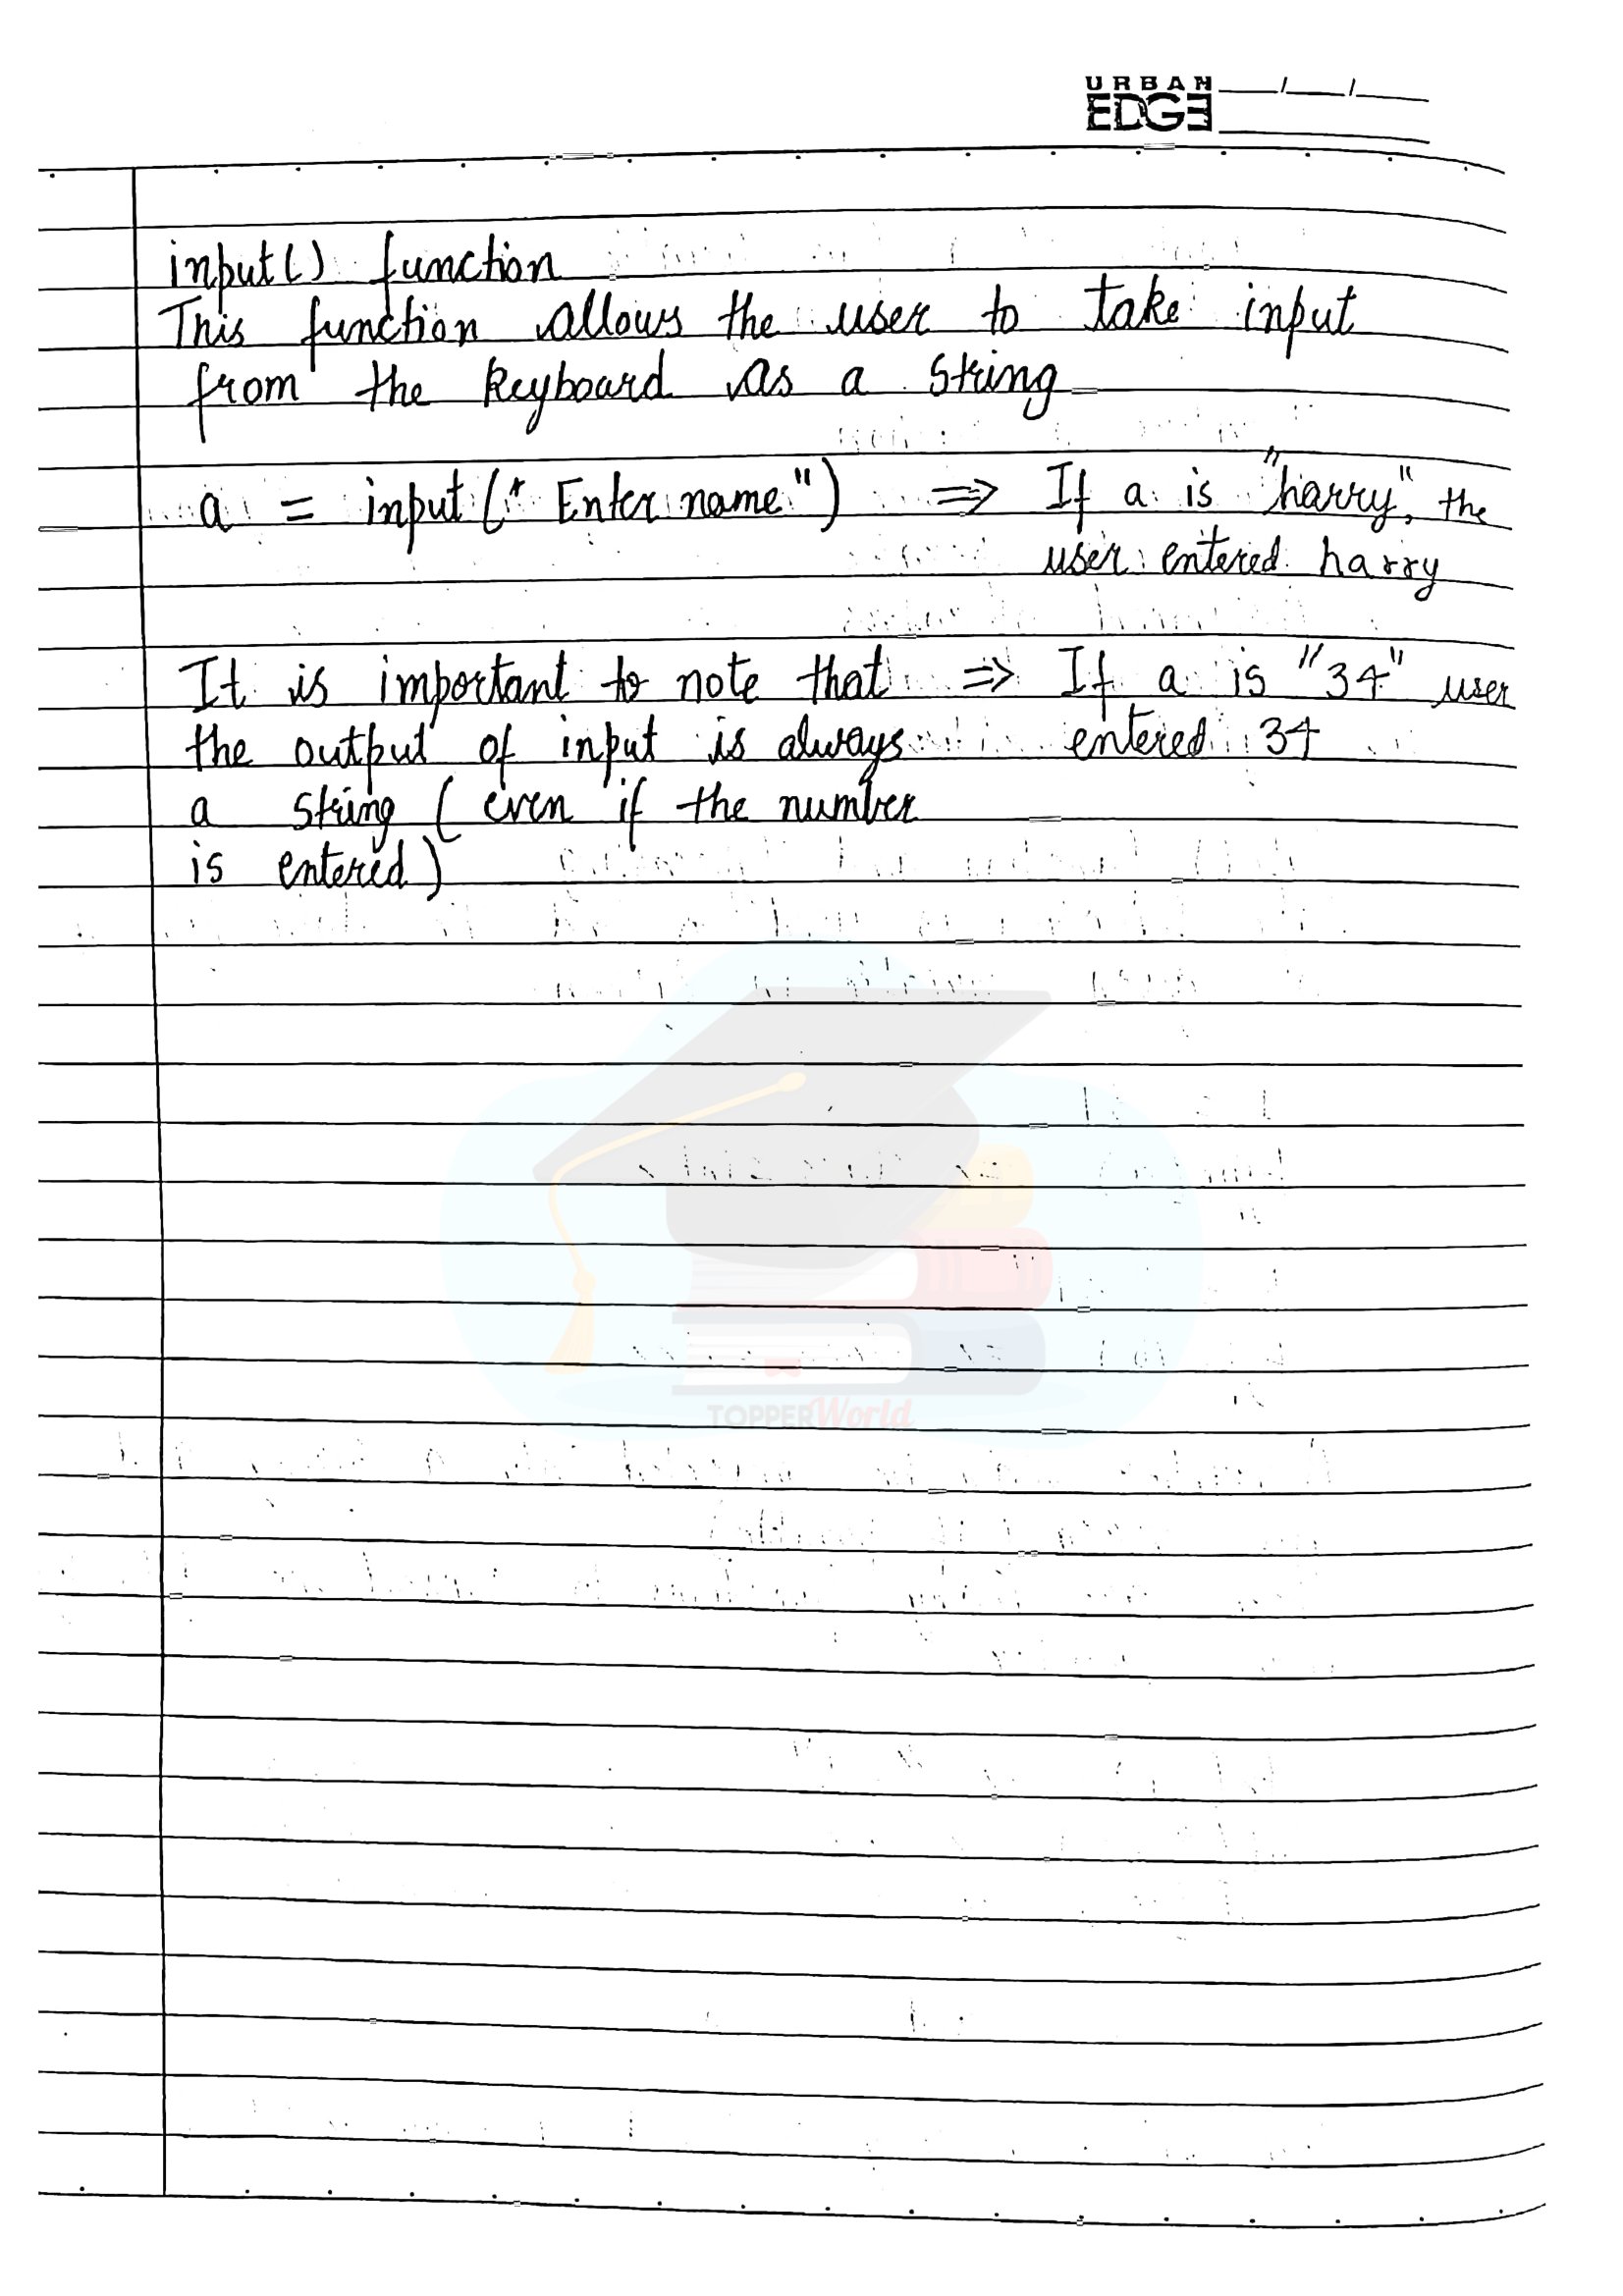 URBAN
EDGE
input() function
This function allows the user to take input
from the keyboard as a string
a = input(" Enter name") ⇒ If a is "harry", the
user entered harry
It is important to note that ⇒ If a is "34" user
the output of input is always entered 34
a string ( even if the number
is entered)
TOPPERWorld